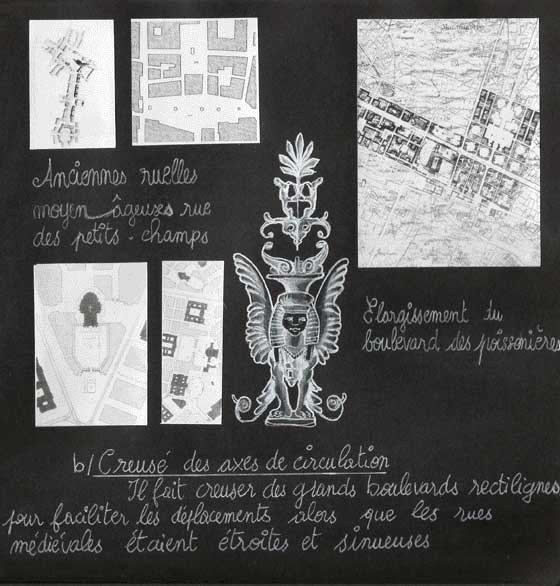 Anciennes ruelles
moyen-âgeuses rue
des petits-champs
Elargissement du
boulevard des poissonières
b/ Creusé des axes de circulation
Il fait creuser des grands boulevards rectilignes
pour faciliter les déplacements alors que les rues
médiévales étaient étroites et sinueuses